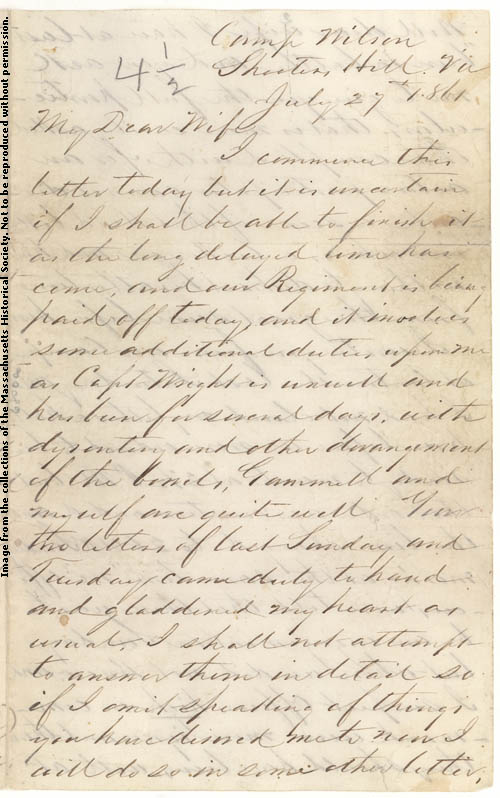 Camp Wilson
4 1/2
Shooters Hill. Va
July 27th 1861
My Dear Wife
I commence this
letter today but it is uncertain
if I shall be able to finish it
as the long delayed time has
come, and our Regiment is being
paid off today, and it involves
some additional duties upon me
as Capt Wright is unwell and
has been for several days, with
dysentery and other derangement
of the bowels, Gammell and
myself are quite well Your
two letters of last Sunday and
Tuesday came duly to hand
and gladdened my heart as
usual, I shall not attempt
to answer them in detail so
if I omit speaking of things
you have desired me to now I
will do so in some other letter,
Image from the collections of the Massachusetts Historical Society. Not to be reproduced without permission.